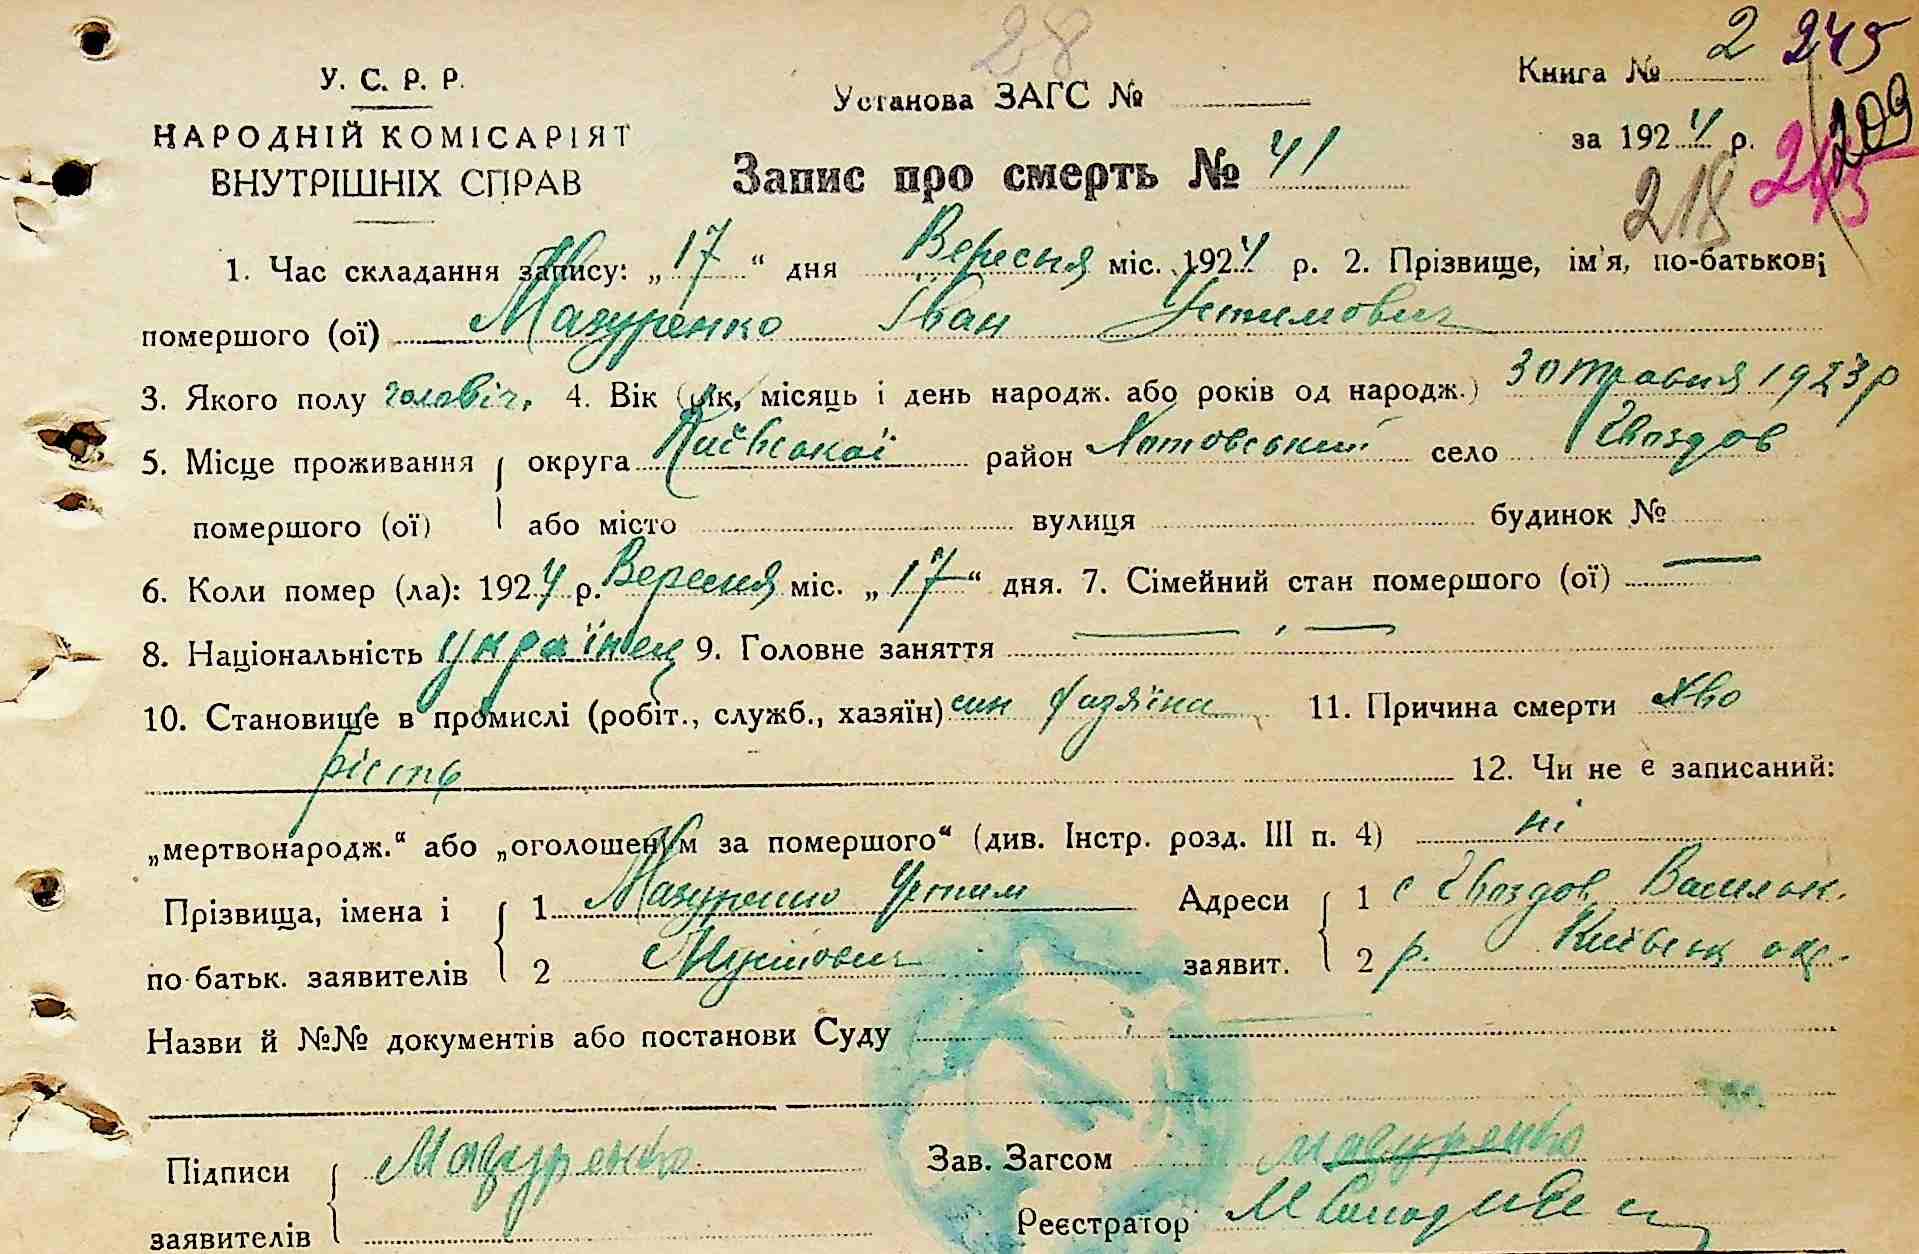 28
У. С. Р. Р.
НАРОДНІЙ КОМІСАРІЯТ
ВНУТРІШНІХ СПРАВ
Установа ЗАГС №
Запис про смерть № 41
Книга № 2 245
за 1924 р. 209
218 245
1. Час складання запису: „17“ дня Вересня міс. 1924 р. 2. Прізвище, ім'я, по-батькові
помершого (ої) Мазуренко Іван Устимович
3. Якого полу чоловіч, 4. Вік (рік, місяць і день народж. або років од народж.) 30 травня 1923 р
5. Місце проживання округа Київської район Хотовський село Гвоздов
помершого (ої) або місто вулиця будинок №
6. Коли помер (ла): 1924 р. Вересня міс. „17“ дня. 7. Сімейний стан помершого (ої) —
8. Національність українец 9. Головне заняття —
10. Становище в промислі (робіт., служб., хазяїн) син хазяїна 11. Причина смерти хво
рість 12. Чи не є записаний:
„мертвонародж.“ або „оголошеним за помершого“ (див. Інстр. розд. III п. 4) ні
Прізвища, імена і 1 Мазуренко Устим Адреси 1 с Гвоздов Васильк.
по-батьк. заявителів 2 заявит. 2 р. Київськ окр.
Назви й №№ документів або постанови Суду
Підписи Мазуренко Зав. Загсом Мазуренко
заявителів Реєстратор